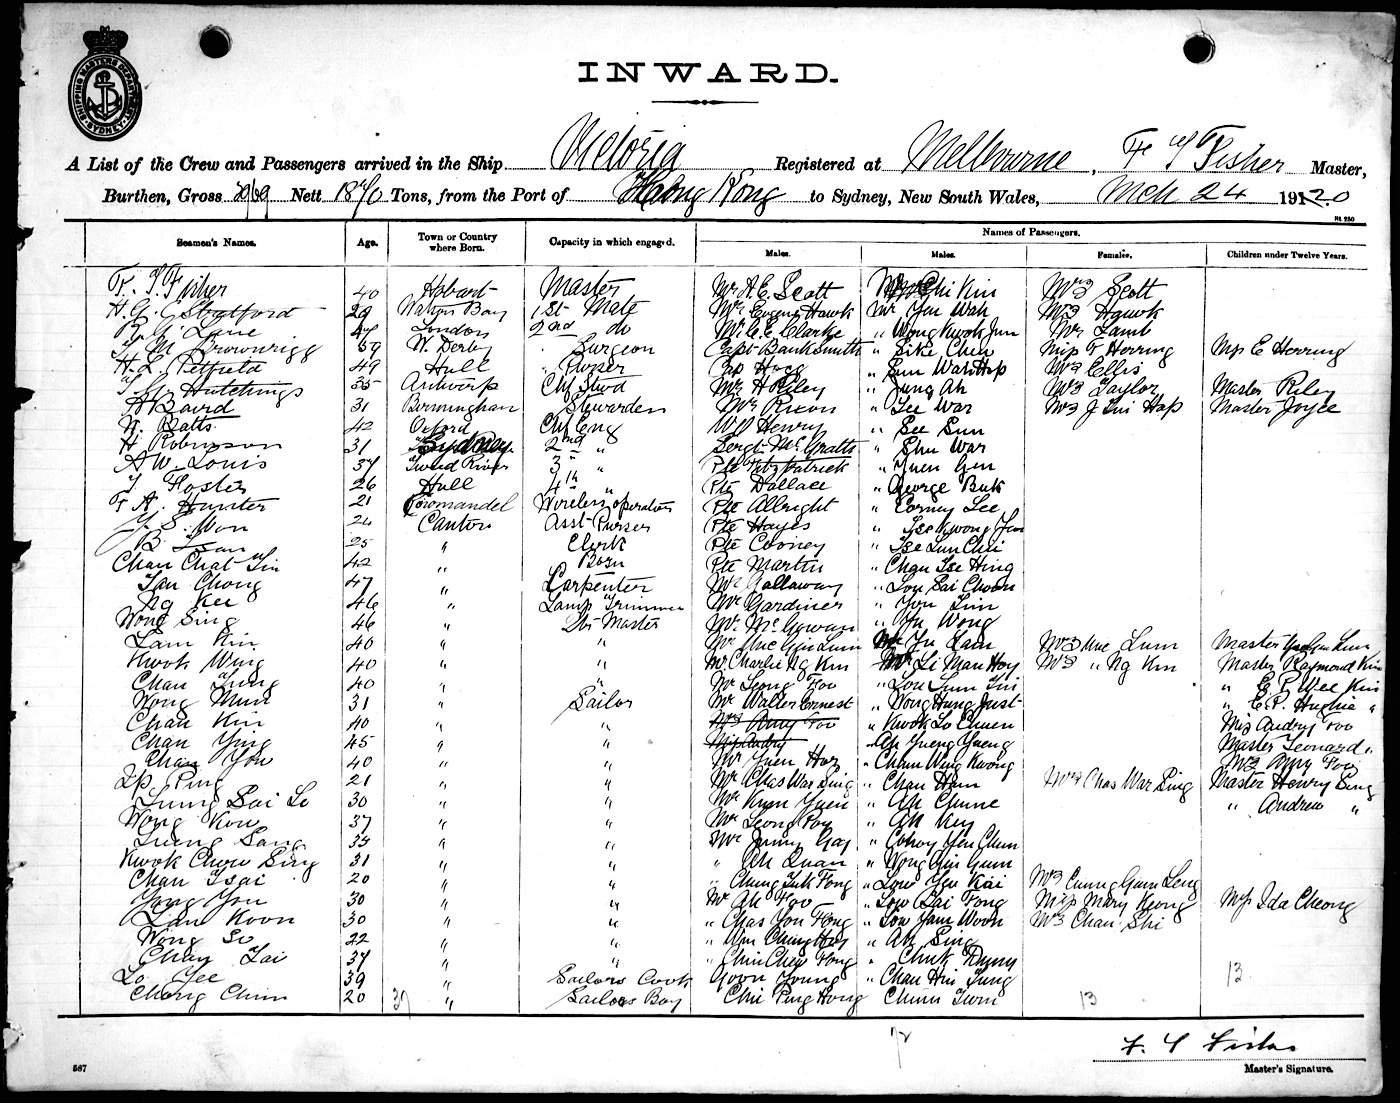 SHIPPING MASTERS DEPARTMENT SYDNEY
INWARD.
A List of the Crew and Passengers arrived in the Ship Victoria Registered at Melbourne, F S Fisher Master,
Burthen, Gross 2969 Nett 1840 Tons, from the Port of Hong Kong to Sydney, New South Wales, Mch 24 1920
Rt 250
Seamen's Names. Age. Town or Country where Born. Capacity in which engaged. Names of Passengers.
Males. Males. Females. Children under Twelve Years.
F. S. Fisher 40 Hobart Master Mr A. E. Scott Chi Kin Mrs Scott
H. G. Stratford 29 Watsons Bay 1st Mate Mr Eugene Hawk Mr Yee Wah Mrs Hawk
Lane London 2nd do Mr C. E. Clarke " Wong Kwok Jun Mrs Lamb
Brownrigg 59 W. Derby Surgeon Capt Banksmith " Sike Chen Miss F Herring Miss E Herring
H. L. Petfield 49 Hull Purser Hogg " Sun War Hop Mrs Ellis
Hutchings 35 Antwerp Chf Stwd Mr H Riley " Jung Ah Mrs Taylor Master Riley
A Baird 31 Birmingham Stewardess Mr " Lee War Mrs J Tui Hap Master Joyce
N. Batts 42 Oxford Chf Eng W O Henry " See Sun
H Robinson 31 Sydney 2nd " Sergt McGratts " Shu War
A W. Louis 37 Tweed River 3 " Pte Fitzpatrick " Yuen Gen
Foster 26 Hull 4th " Pte Wallace " George Buk
F A. Hunter 21 Coromandel Wireless operator Pte Albright " Corney Lee
Won 24 Canton Asst Purser Pte Hayes " Tse Kwong Jun
B. 25 " Clerk Pte Cooney " Tse Lun Chui
Chan Chat Tin 42 " Bosn Pte Martin " Chan Tse Hing
Tan Chong 47 " Carpenter Mr Gallaway " Lou Sai Choon
Ng Kee 46 " Lamp Trimmer Mr Gardiner " You Lim
Wong Sing 46 " Qtr Master Mr McGowan " Yu Wong
Lam Kin 40 " " Mr Mue Gun Lum Mr Yu Lam Mrs Mue Lum Master Lum
Kwok Wing 40 " " Mr Charlie Ng Kin Mr Li Man Hoy Mrs " Ng Kin Master Raymond Kin
Chan Tung 40 " " Mr Leong Foo " Lou Lum Tin " E. P. Wee Kin
Wong Mun 31 " Sailor Mr Walter Ernest " Wong Hung Just " E. P. Hughie "
Chan Kin 40 " " Mrs Amy Foo " Kwok Lo Chuen Miss Audry Foo
Chan Ying 45 " " Miss Audry Ah Yueng Yueng Master Leonard "
Chan You 40 " " Mr Yuen Hoy " Chan Wing Kwong Mrs Amy Foo
Ip Ping 21 " " Mr Chas War Sing " Chan Ham Mrs Chas War Sing Master Henry Sing
Tung Sai Lo 30 " " Mr Kum Yuen " Ah Chune " Andrew "
Wong Kow 37 " " Mr Leong Poy " Ah Key
Leung Sang 35 " " Mr Jimmy Gay " Conoy Yen Chun
Kwok Chow Sing 31 " " " Ah Quan " Wong Hin Yum
Chan Tsai 20 " " " Chung Tuk Fong " Low Yen Kai Mrs Cunng Gum Leng
Yong You 30 " " Mr Ah Foo " Low Sai Fong Miss Mary Keong Miss Ida Cheong
Lan Koon 30 " " " Chas You Fong " Low Yam Woon Mrs Chan Shi
Wong So 22 " " " Wm Chung Hoy " Ah Sing
Chan Tai 37 " " " Chin Chew Fong " Chuk
Lo Yee 39 " Sailors Cook Goon Young " Chan Hin Tung 13
Chong Chun 20 37 " Sailors Boy Chu Ping Hong Chunn Twin 13
72
F. S Fisher
587 Master's Signature.